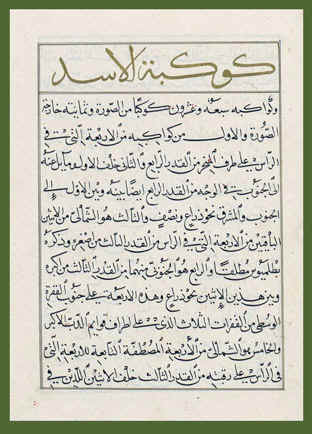 كوكبة الاسد
وكواكبه سبعة وعشرون كوكبا من الصورة وثمانية خارج
الصورة والاول من كواكبه من الاربعة التي في
الراس على طرف المنخر من القدر الرابع والثاني خلف الاول
الى الجنوب في الوجه من القدر الرابع ايضا بينه وبين الاول الى
الجنوب والمشرق نحو ذراع ونصف والثالث هو الشمالي من الاثنين
الباقيين من الاربعة التي في الراس من القدر الثالث من اصغره وذكره
بطلميوس مطلقا والرابع هو الجنوبي منهما من القدر الثالث من اكبره
وبين هذين الاثنين نحو ذراع وهذه الاربعة على جنوب الفقرة
الوسطى من الفقرات الثلاث الذي على اطراف قوايم الدب الاكبر
والخامس هو الشمالي من الاربعة المصطفة التابعة للاربعة التي
في الراس على رقبته من القدر الثالث خلف الاثنين اللذين في